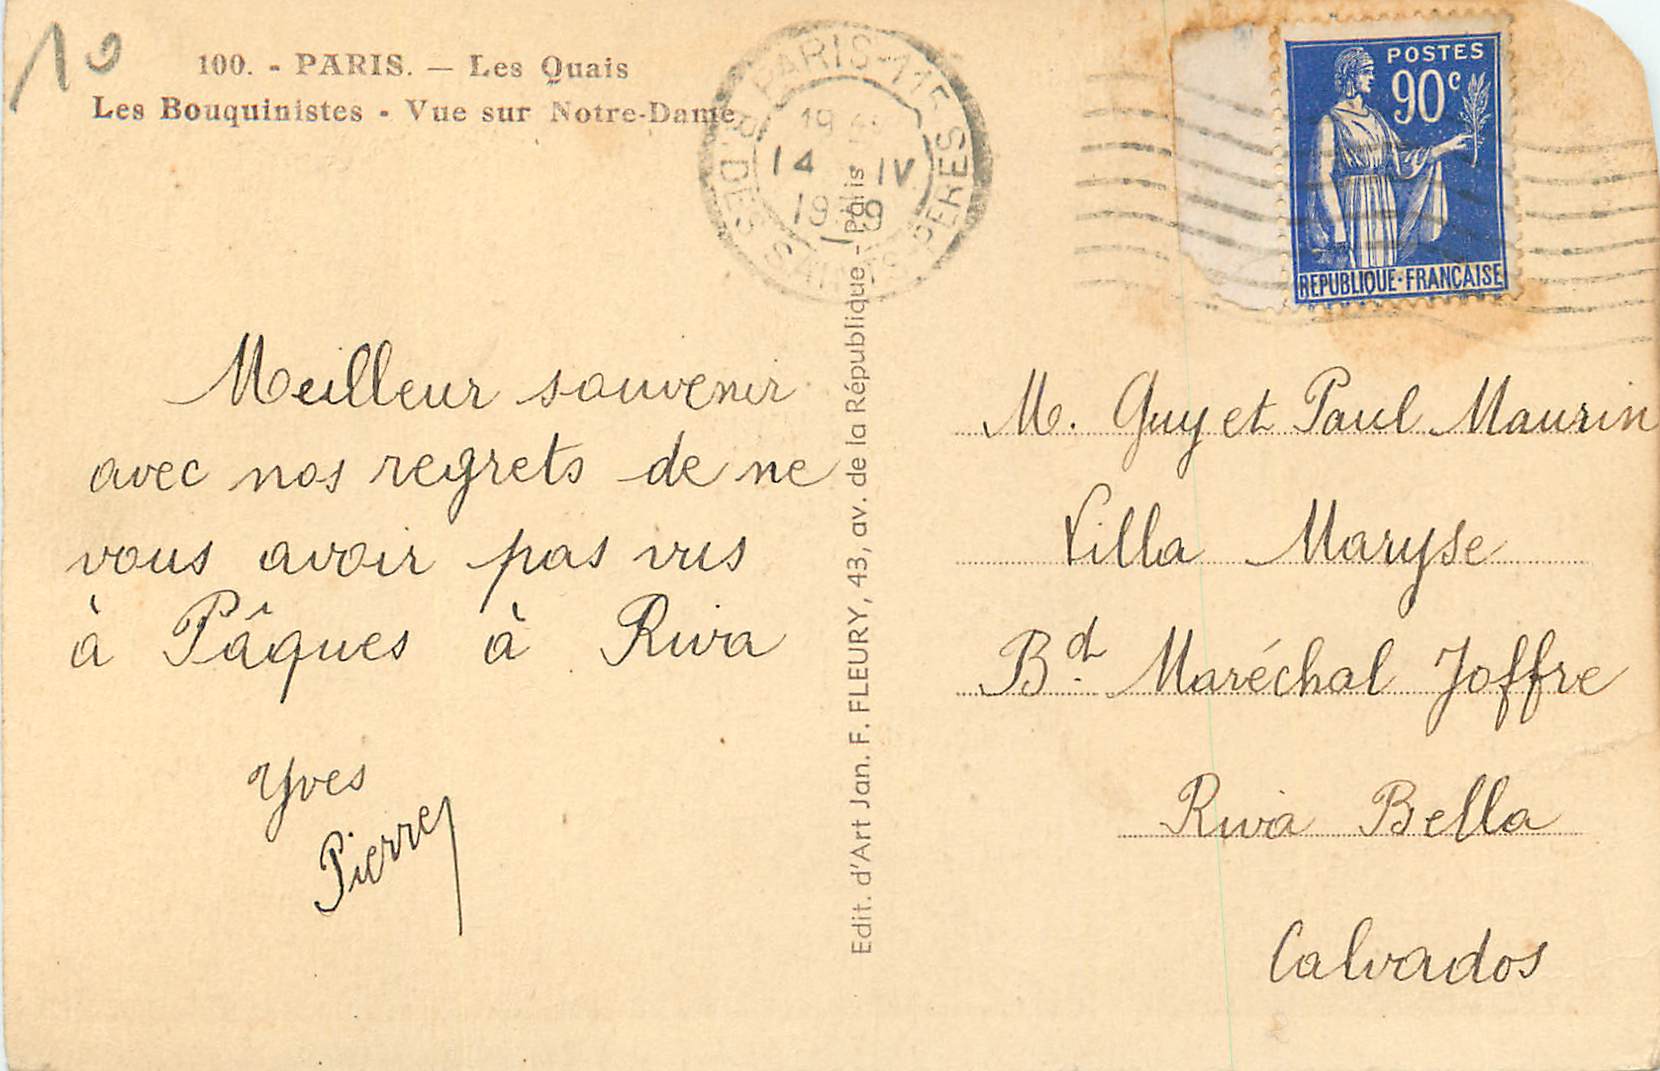 10
100. - PARIS. — Les Quais
Les Bouquinistes - Vue sur Notre-Dame
PARIS-115
R. DES SAINTS-PERES
19
14 IV
1939
POSTES
90c
REPUBLIQUE·FRANCAISE
Meilleur souvenir
avec nos regrets de ne
vous avoir pas vus
à Pâques à Riva
Yves
Pierre
Edit. d'Art Jan. F. FLEURY, 43, av. de la République - Paris
M. Guy et Paul Maurin
Villa Maryse
Bd. Maréchal Joffre
Riva Bella
Calvados